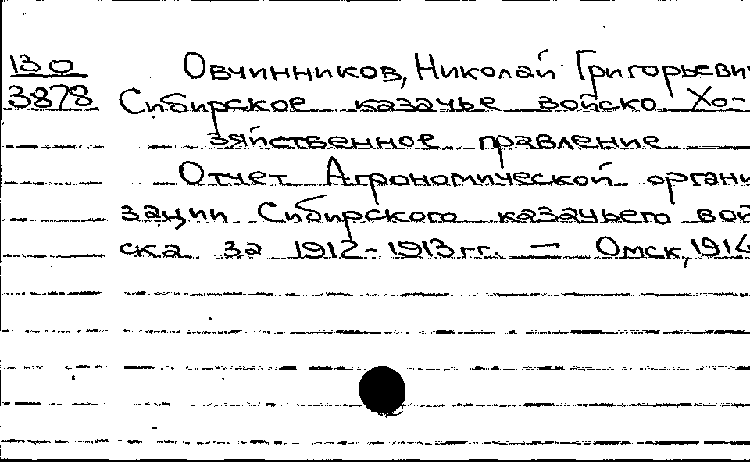 13 0 Овчинников, Николай Григорьевич
3878 Сибирское казачье войско. Хо-
зяйственное правление
Отчет Агрономической органи
зации Сибирского казачьего вой
ска за 1912-1913 гг. — Омск, 1914